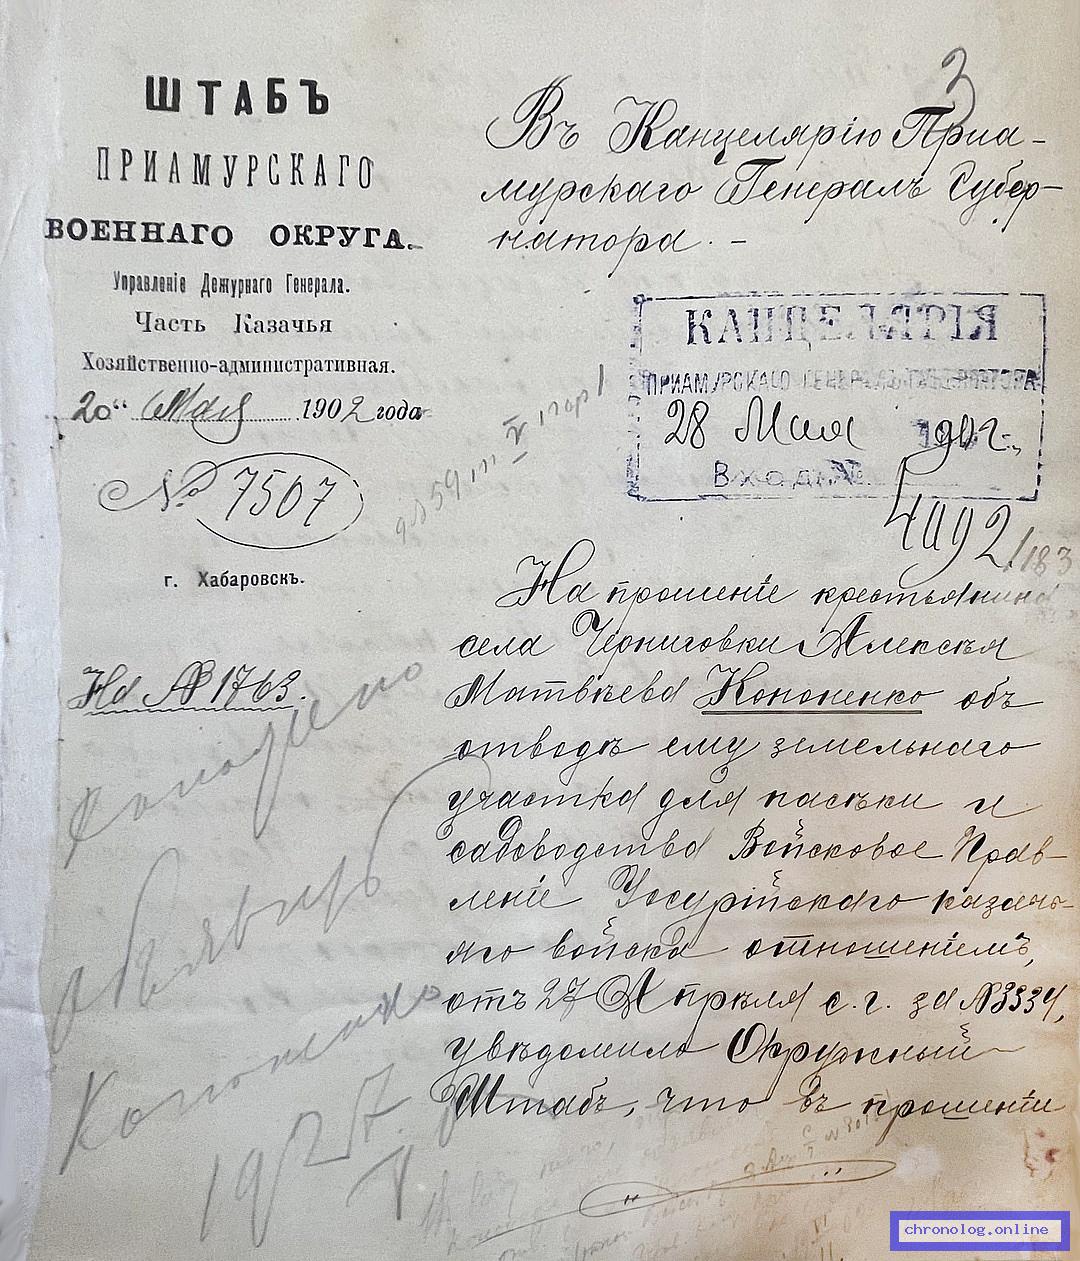 3
ШТАБЪ
ПРИАМУРСКАГО
ВОЕННАГО ОКРУГА.
Управленіе Дежурнаго Генерала.
Часть Казачья
Хозяйственно-административная.
20" Мая 1902 года
№ 7507
г. Хабаровскъ.
На № 1763.
Въ Канцелярію Приа-
мурскаго Генералъ Губер-
натора. -
КАНЦЕЛЯРІЯ
ПРИАМУРСКАГО ГЕНЕРАЛЪ ГУБЕРНАТОРА
28 Мая 1902 г.
Входъ №
4092/183
На прошеніе крестьянина
села Черниговки Алексѣя
Матвѣева Кононенко объ
отводѣ ему земельнаго
участка для пасѣки и
садоводства Войсковое Прав-
леніе Уссурійскаго казачь-
яго войска отношеніемъ,
отъ 27 Апрѣля с. г. за № 3334,
увѣдомило Окружный
Штабъ, что въ прошеніи
объявить
Кононенко
chronolog.online